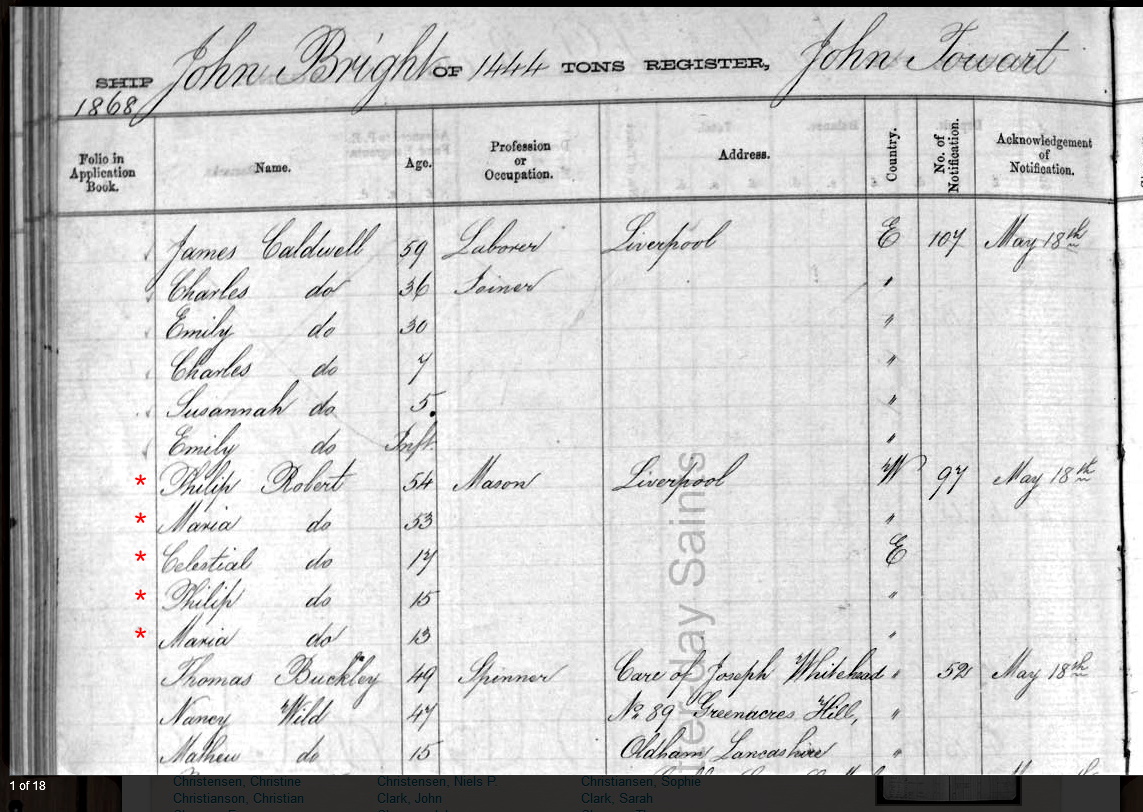 SHIP John Bright OF 1444 TONS REGISTER, John Towart
1868
Folio in Application Book. Name. Age. Profession or Occupation. Address. Country. No. of Notification. Acknowledgement of Notification.
James Caldwell 59 Laborer Liverpool E 107 May 18th
Charles do 36 Joiner "
Emily do 30 "
Charles do 7 "
Susannah do 5. "
Emily do Inft. "
* Philip Robert 54 Mason Liverpool W 97 May 18th
* Maria do 53 "
* Celestial do 17 E
* Philip do 15 "
* Maria do 13 "
Thomas Buckley 49 Spinner Care of Joseph Whitehead " 52 May 18th
Nancy Wild 47 No. 89 Greenacres Hill, "
Mathew do 15 Oldham Lancashire "
1 of 18
Christensen, Christine Christensen, Niels P. Christiansen, Sophie
Christianson, Christian Clark, John Clark, Sarah